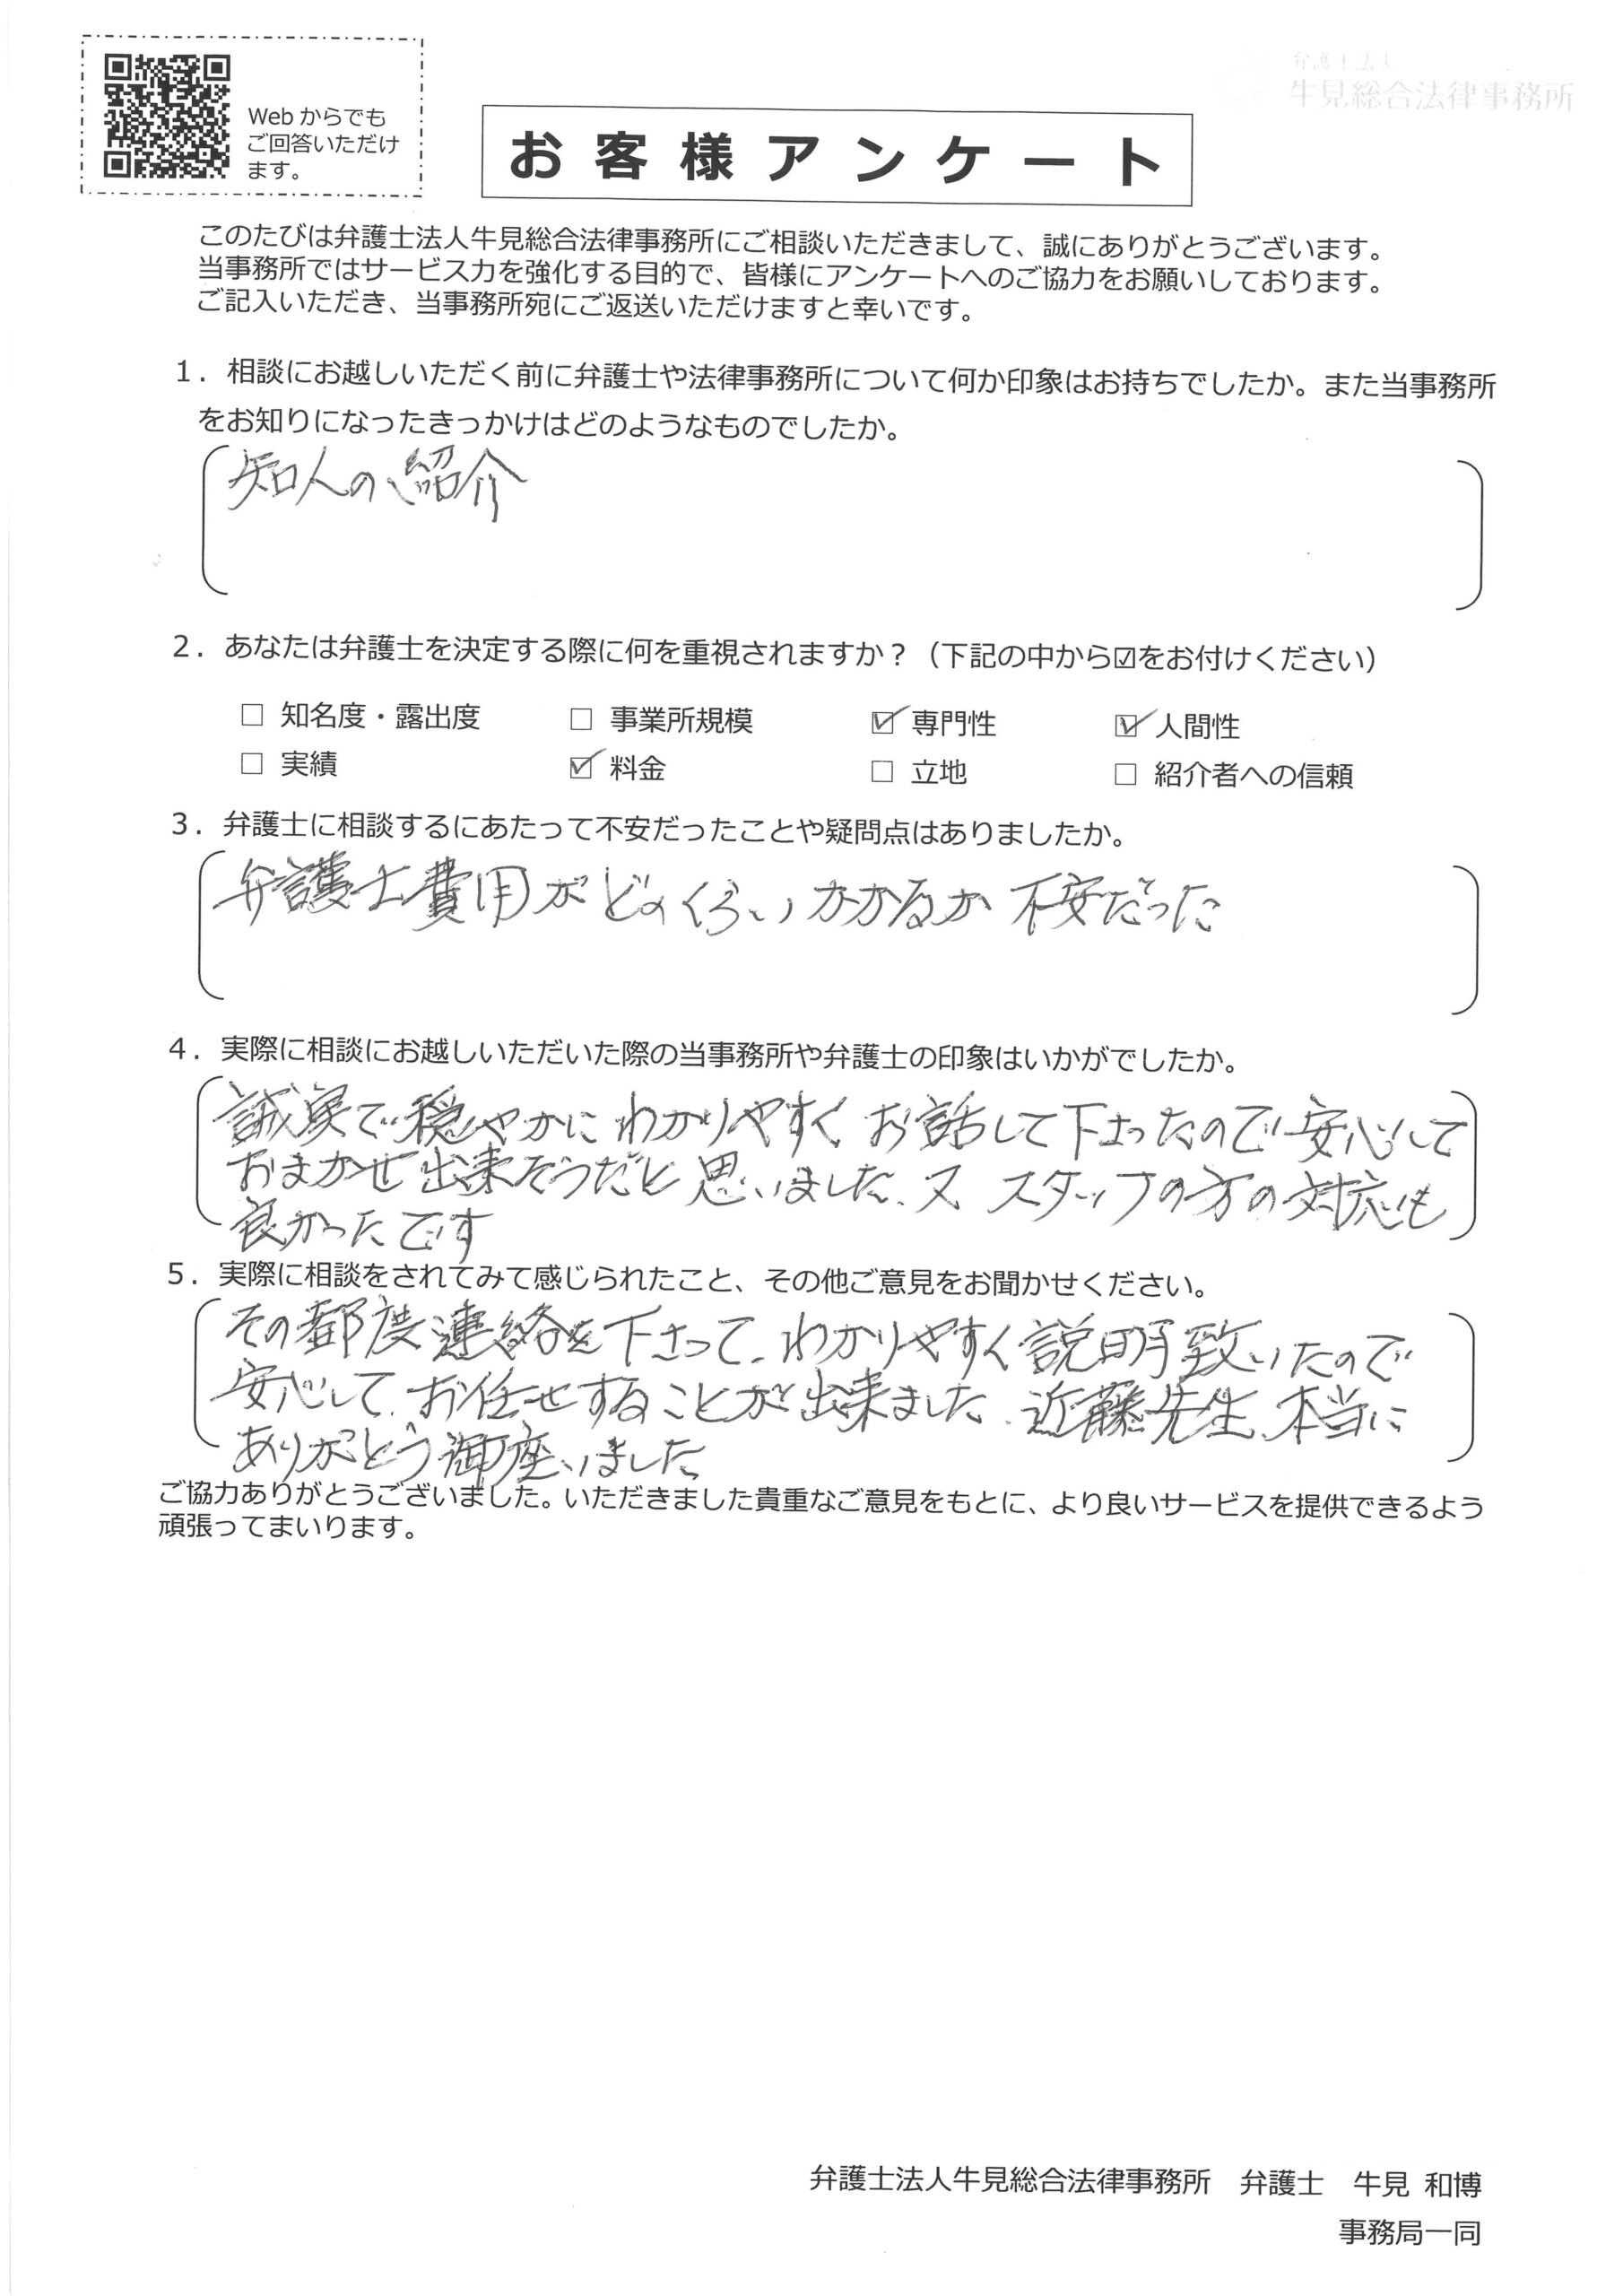 Webからでも
ご回答いただけ
ます。
弁護士法人
牛見総合法律事務所
お客様アンケート
このたびは弁護士法人牛見総合法律事務所にご相談いただきまして、誠にありがとうございます。
当事務所ではサービス力を強化する目的で、皆様にアンケートへのご協力をお願いしております。
ご記入いただき、当事務所宛にご返送いただけますと幸いです。
1．相談にお越しいただく前に弁護士や法律事務所について何か印象はお持ちでしたか。また当事務所
をお知りになったきっかけはどのようなものでしたか。
知人の紹介
2．あなたは弁護士を決定する際に何を重視されますか？（下記の中から☑をお付けください）
□ 知名度・露出度 □ 事業所規模 ☑ 専門性 ☑ 人間性
□ 実績 ☑ 料金 □ 立地 □ 紹介者への信頼
3．弁護士に相談するにあたって不安だったことや疑問点はありましたか。
弁護士費用がどのくらいかかるか 不安だった
4．実際に相談にお越しいただいた際の当事務所や弁護士の印象はいかがでしたか。
誠実で穏やかに わかりやすく お話して下さったので 安心して
おまかせ出来そうだと思いました、又 スタッフの方の対応も
良かったです
5．実際に相談をされてみて感じられたこと、その他ご意見をお聞かせください。
その都度連絡を下さって、わかりやすく説明致いたので
安心して、お任せすることが出来ました、近藤先生、本当に
ありがとう御座いました
ご協力ありがとうございました。いただきました貴重なご意見をもとに、より良いサービスを提供できるよう
頑張ってまいります。
弁護士法人牛見総合法律事務所　弁護士　牛見 和博
事務局一同